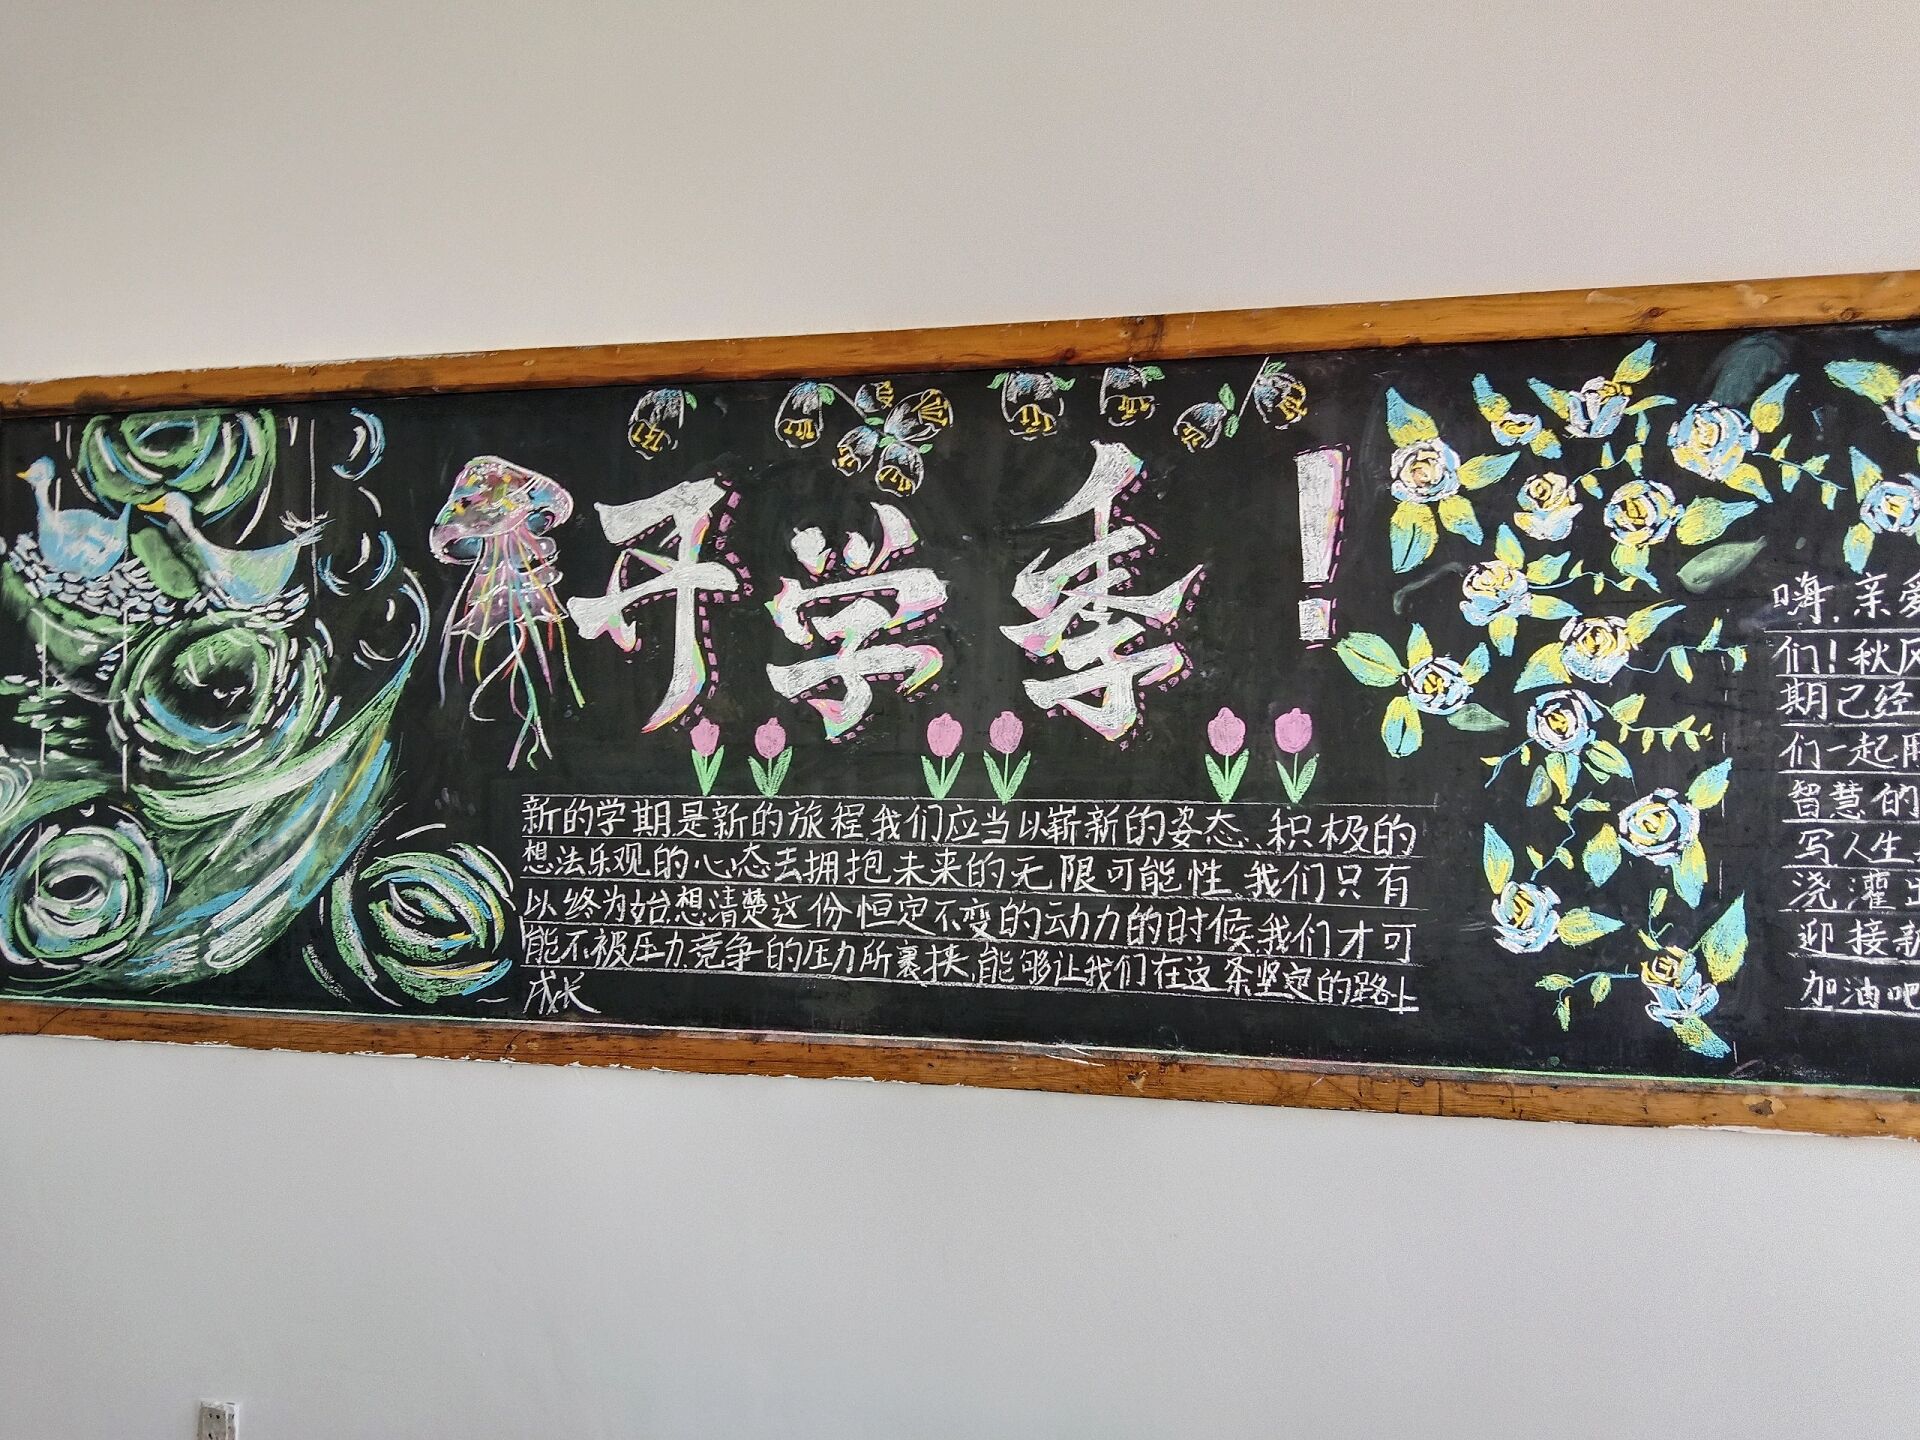 开学季!
新的学期是新的旅程我们应当以崭新的姿态、积极的
想法乐观的心态去拥抱未来的无限可能性、我们只有
以终为始,想清楚这份恒定不变的动力的时候,我们才可
能不被压力竞争的压力所裹挟,能够让我们在这条坚定的路上
成长
嗨,亲爱
们!秋风
期已经
们一起用
智慧的
写人生
浇灌出
迎接新
加油吧